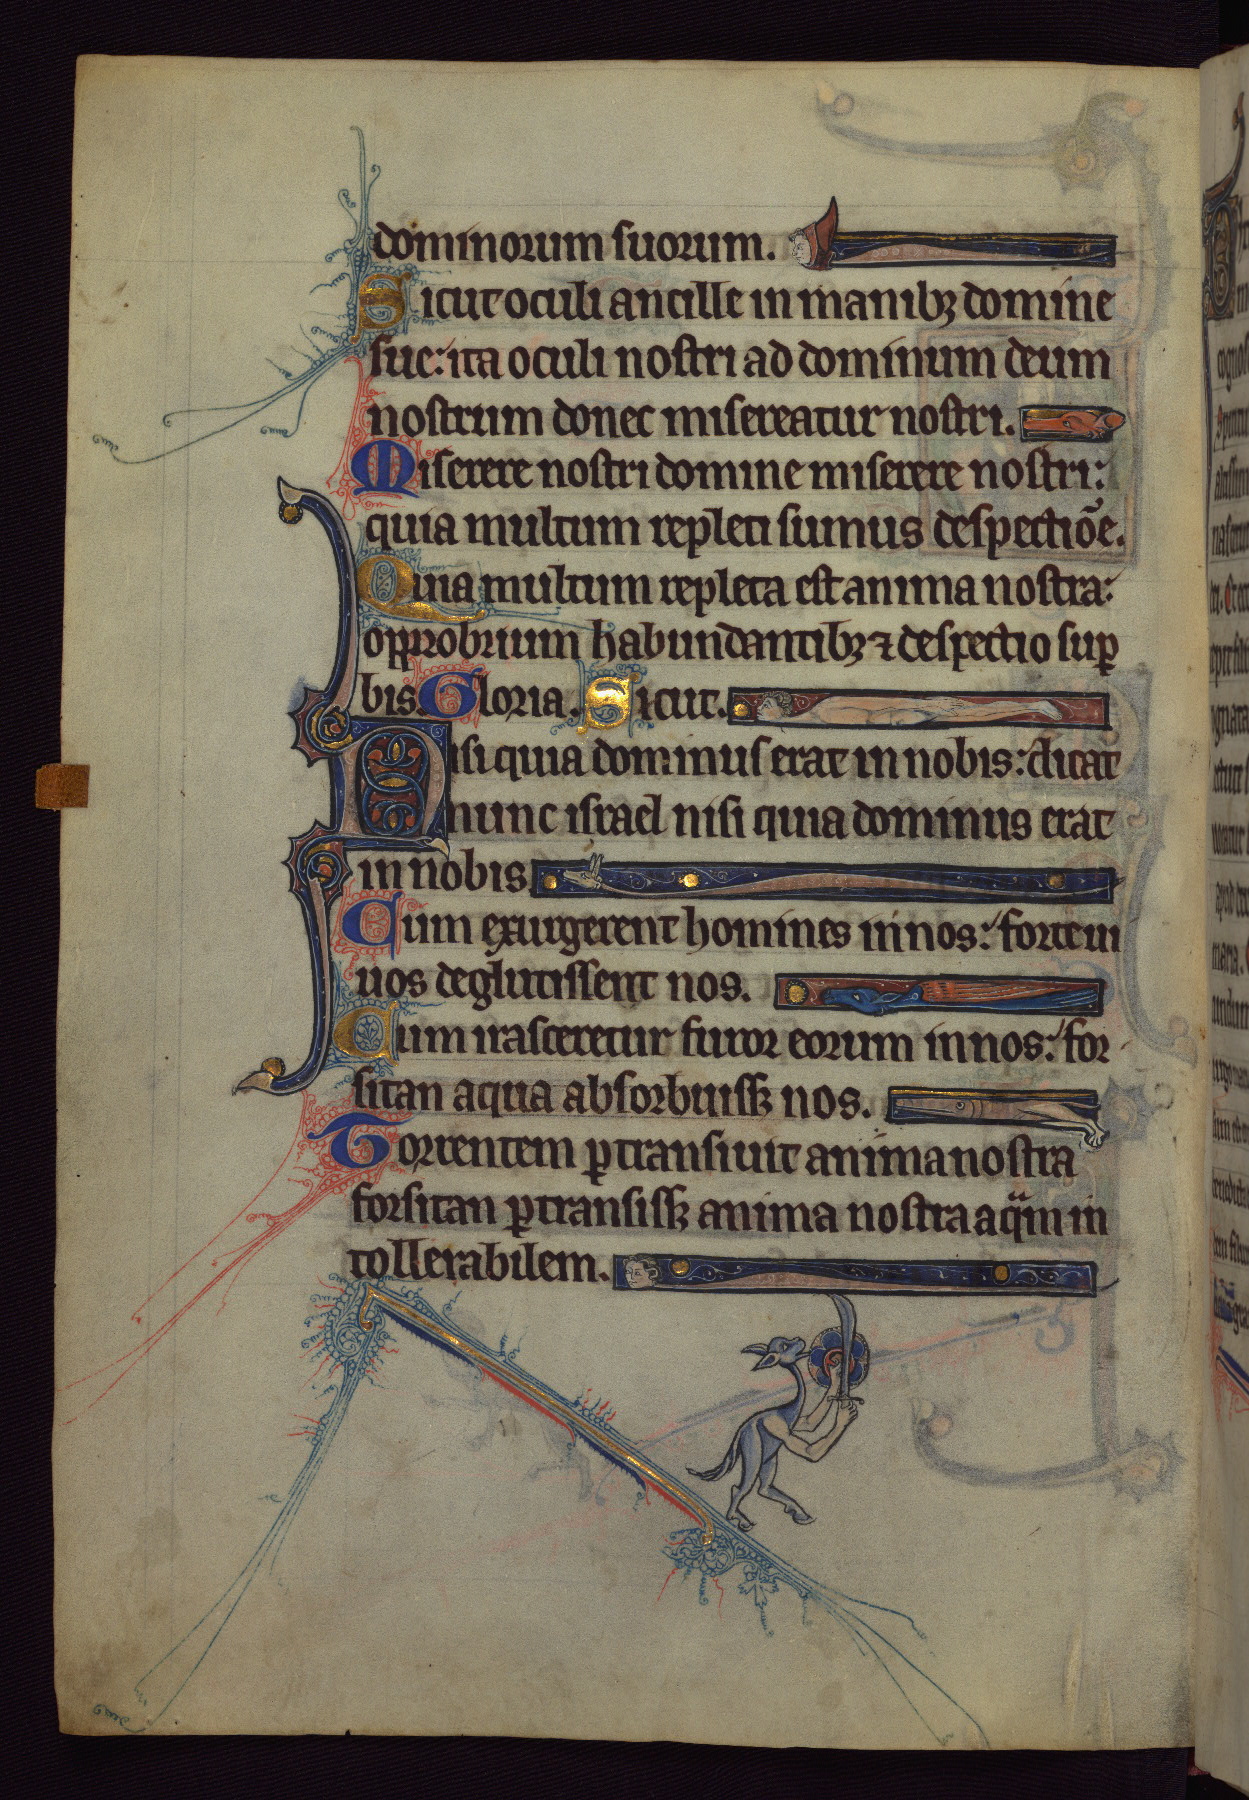 dominorum suorum.
Sicut oculi ancille in manibꝫ domine
sue: ita oculi nostri ad dominum deum
nostrum donec misereatur nostri.
Miserere nostri domine miserere nostri:
quia multum repleti sumus despectiōe.
Quia multum repleta est anima nostra:
opprobrium habundantibꝫ ⁊ despectio suꝑ
bis. Gloria. Sicut.
Nisi quia dominus erat in nobis: dicat
nunc israel nisi quia dominus erat
in nobis
Cum exurgerent homines in nos: forte ui
uos deglutissent nos.
Cum irasceretur furor eorum in nos: for
sitan aqua absorbuissꝫ nos.
Torrentem ꝑtransiuit anima nostra
forsitan ꝑtransissꝫ anima nostra aqᷓm in
tollerabilem.